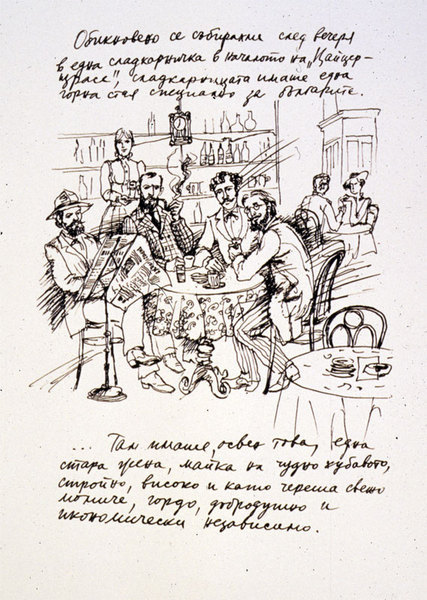 Обикновено се събирахме след вечеря
в една сладкарничка в началото на „Цайцер-
щрасе", сладкарницата имаше една
горна стая специално за българите.
... Там имаше, освен това, една
стара жена, майка на чудно хубавото,
стройно, високо и като череша свежо
момиче, гордо, добродушно и
икономически независимо.